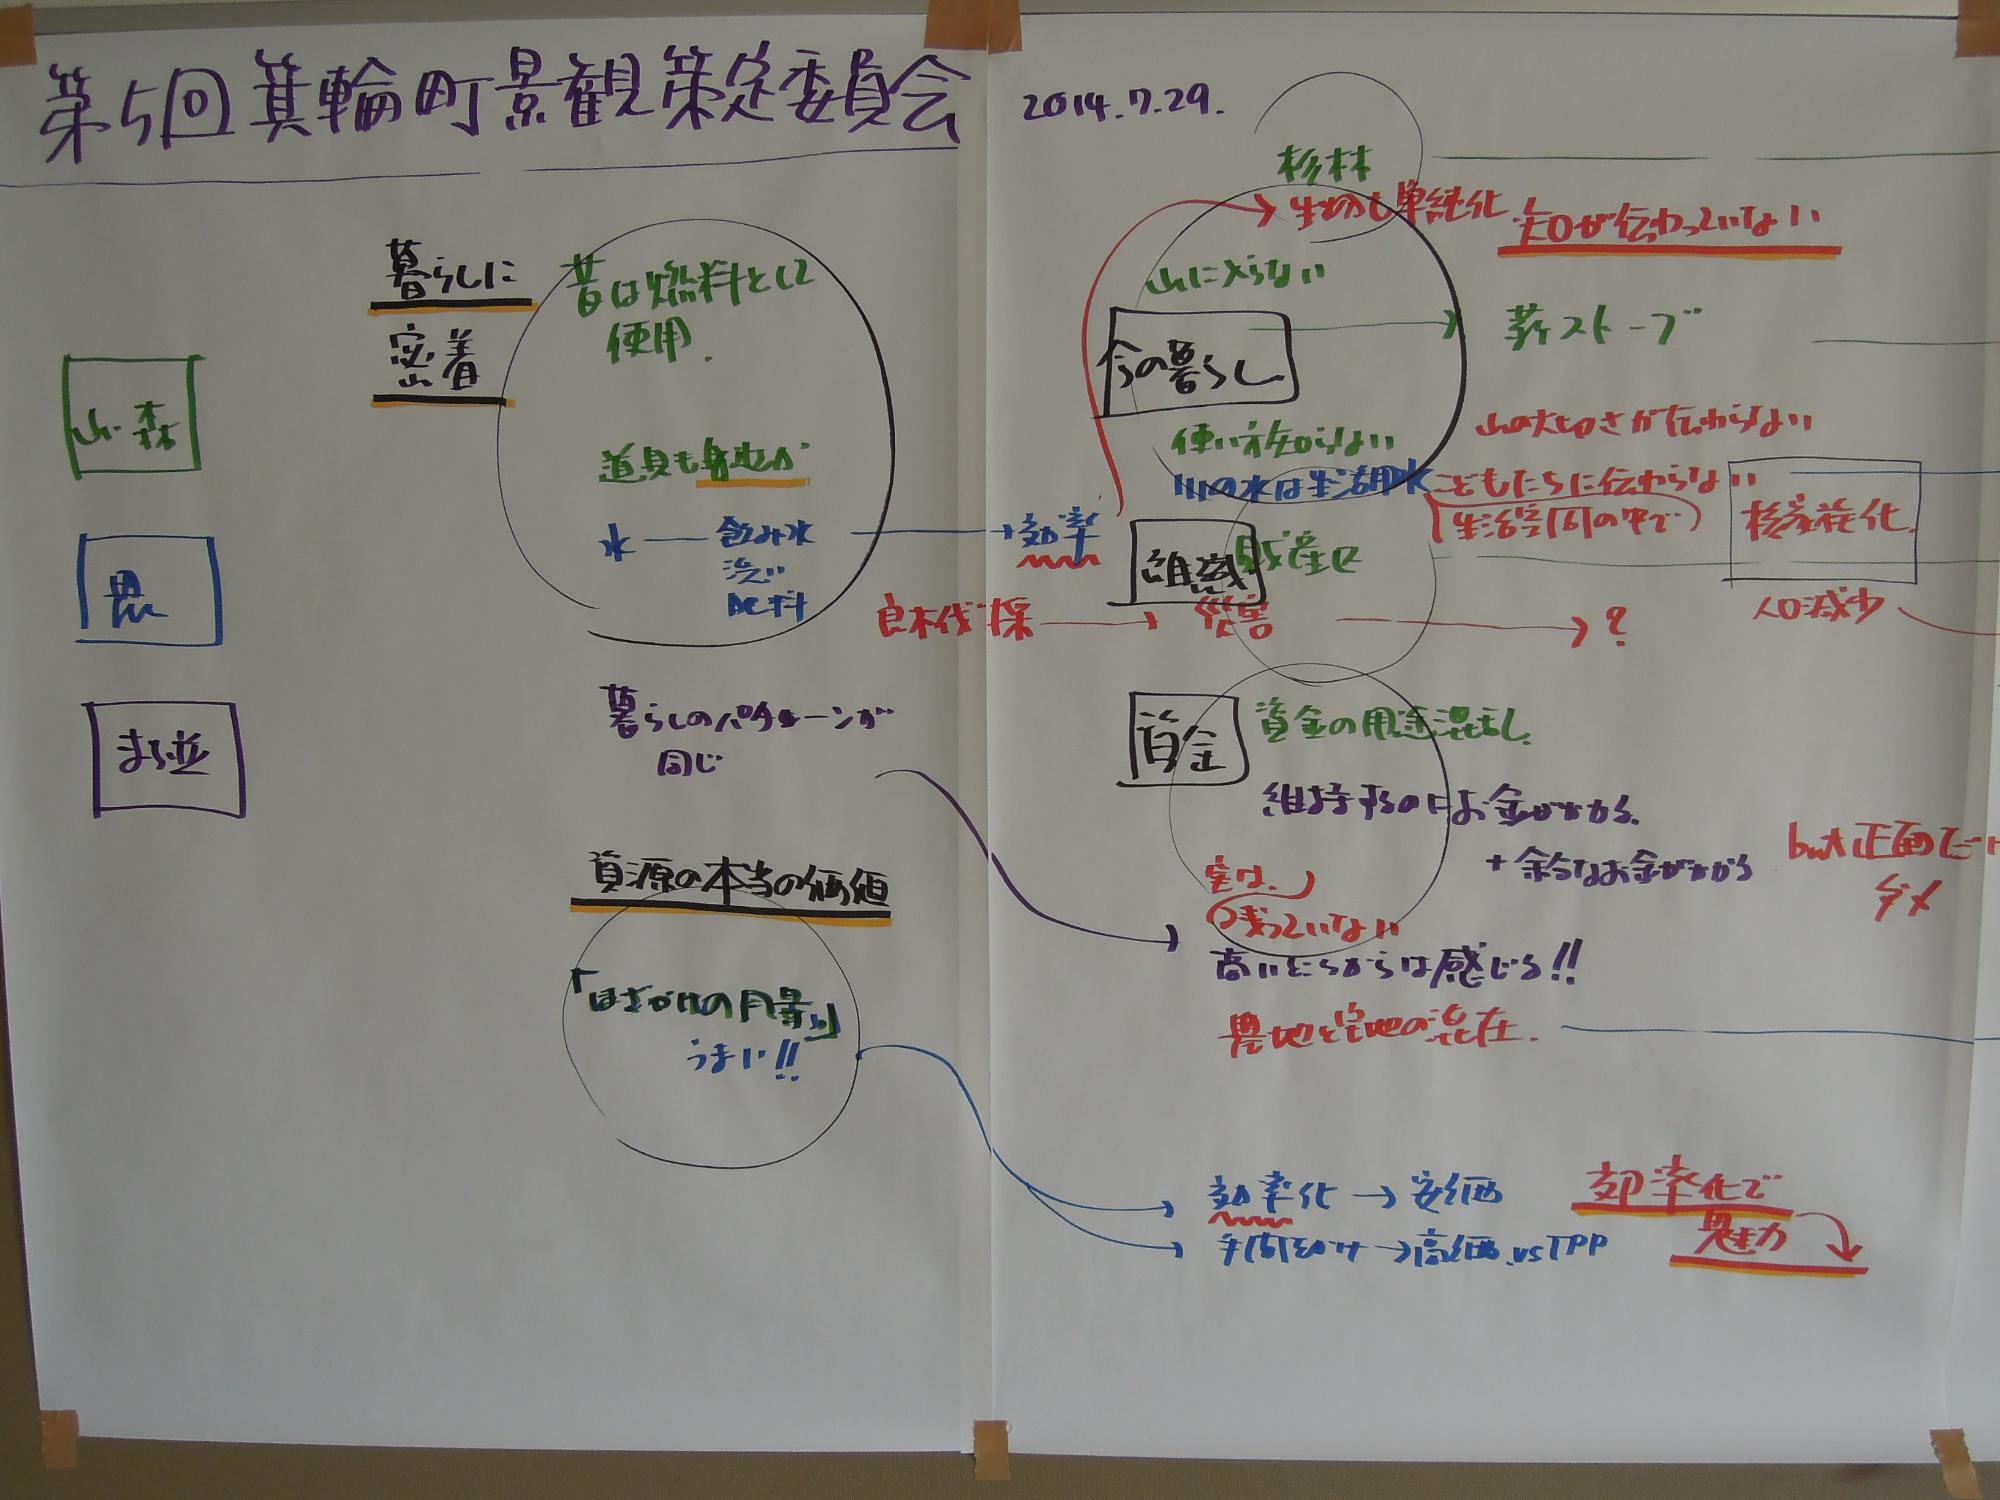 第5回 箕輪町景観策定委員会
2014.7.29.
山・森
農
まち並
暮らしに
密着
昔は燃料として
使用.
道具も身近か
水 — 飲み水
洗い
肥料
効率
暮らしのパターンが
同じ
資源の本当の価値
「はざかけの風景」
うまい!!
杉林
生物も単純化
知が伝わっていない
山に入らない
今の暮らし
薪ストーブ
使い方知らない
川の水は生活用水
山の大切さが伝わらない
こどもたちに伝わらない
(生活空間の中で)
核家族化.
人口減少
組織
財産区
良木伐採
災害
?
資金
資金の用途混乱.
維持するのにお金がかかる.
+余分なお金がかかる
but 正面だけ
ダメ
実は、
残っていない
高いところからは感じる!!
農地と宅地の混在.
効率化→安価
手間ひまかけ→高価.vsTPP
効率化で
魅力